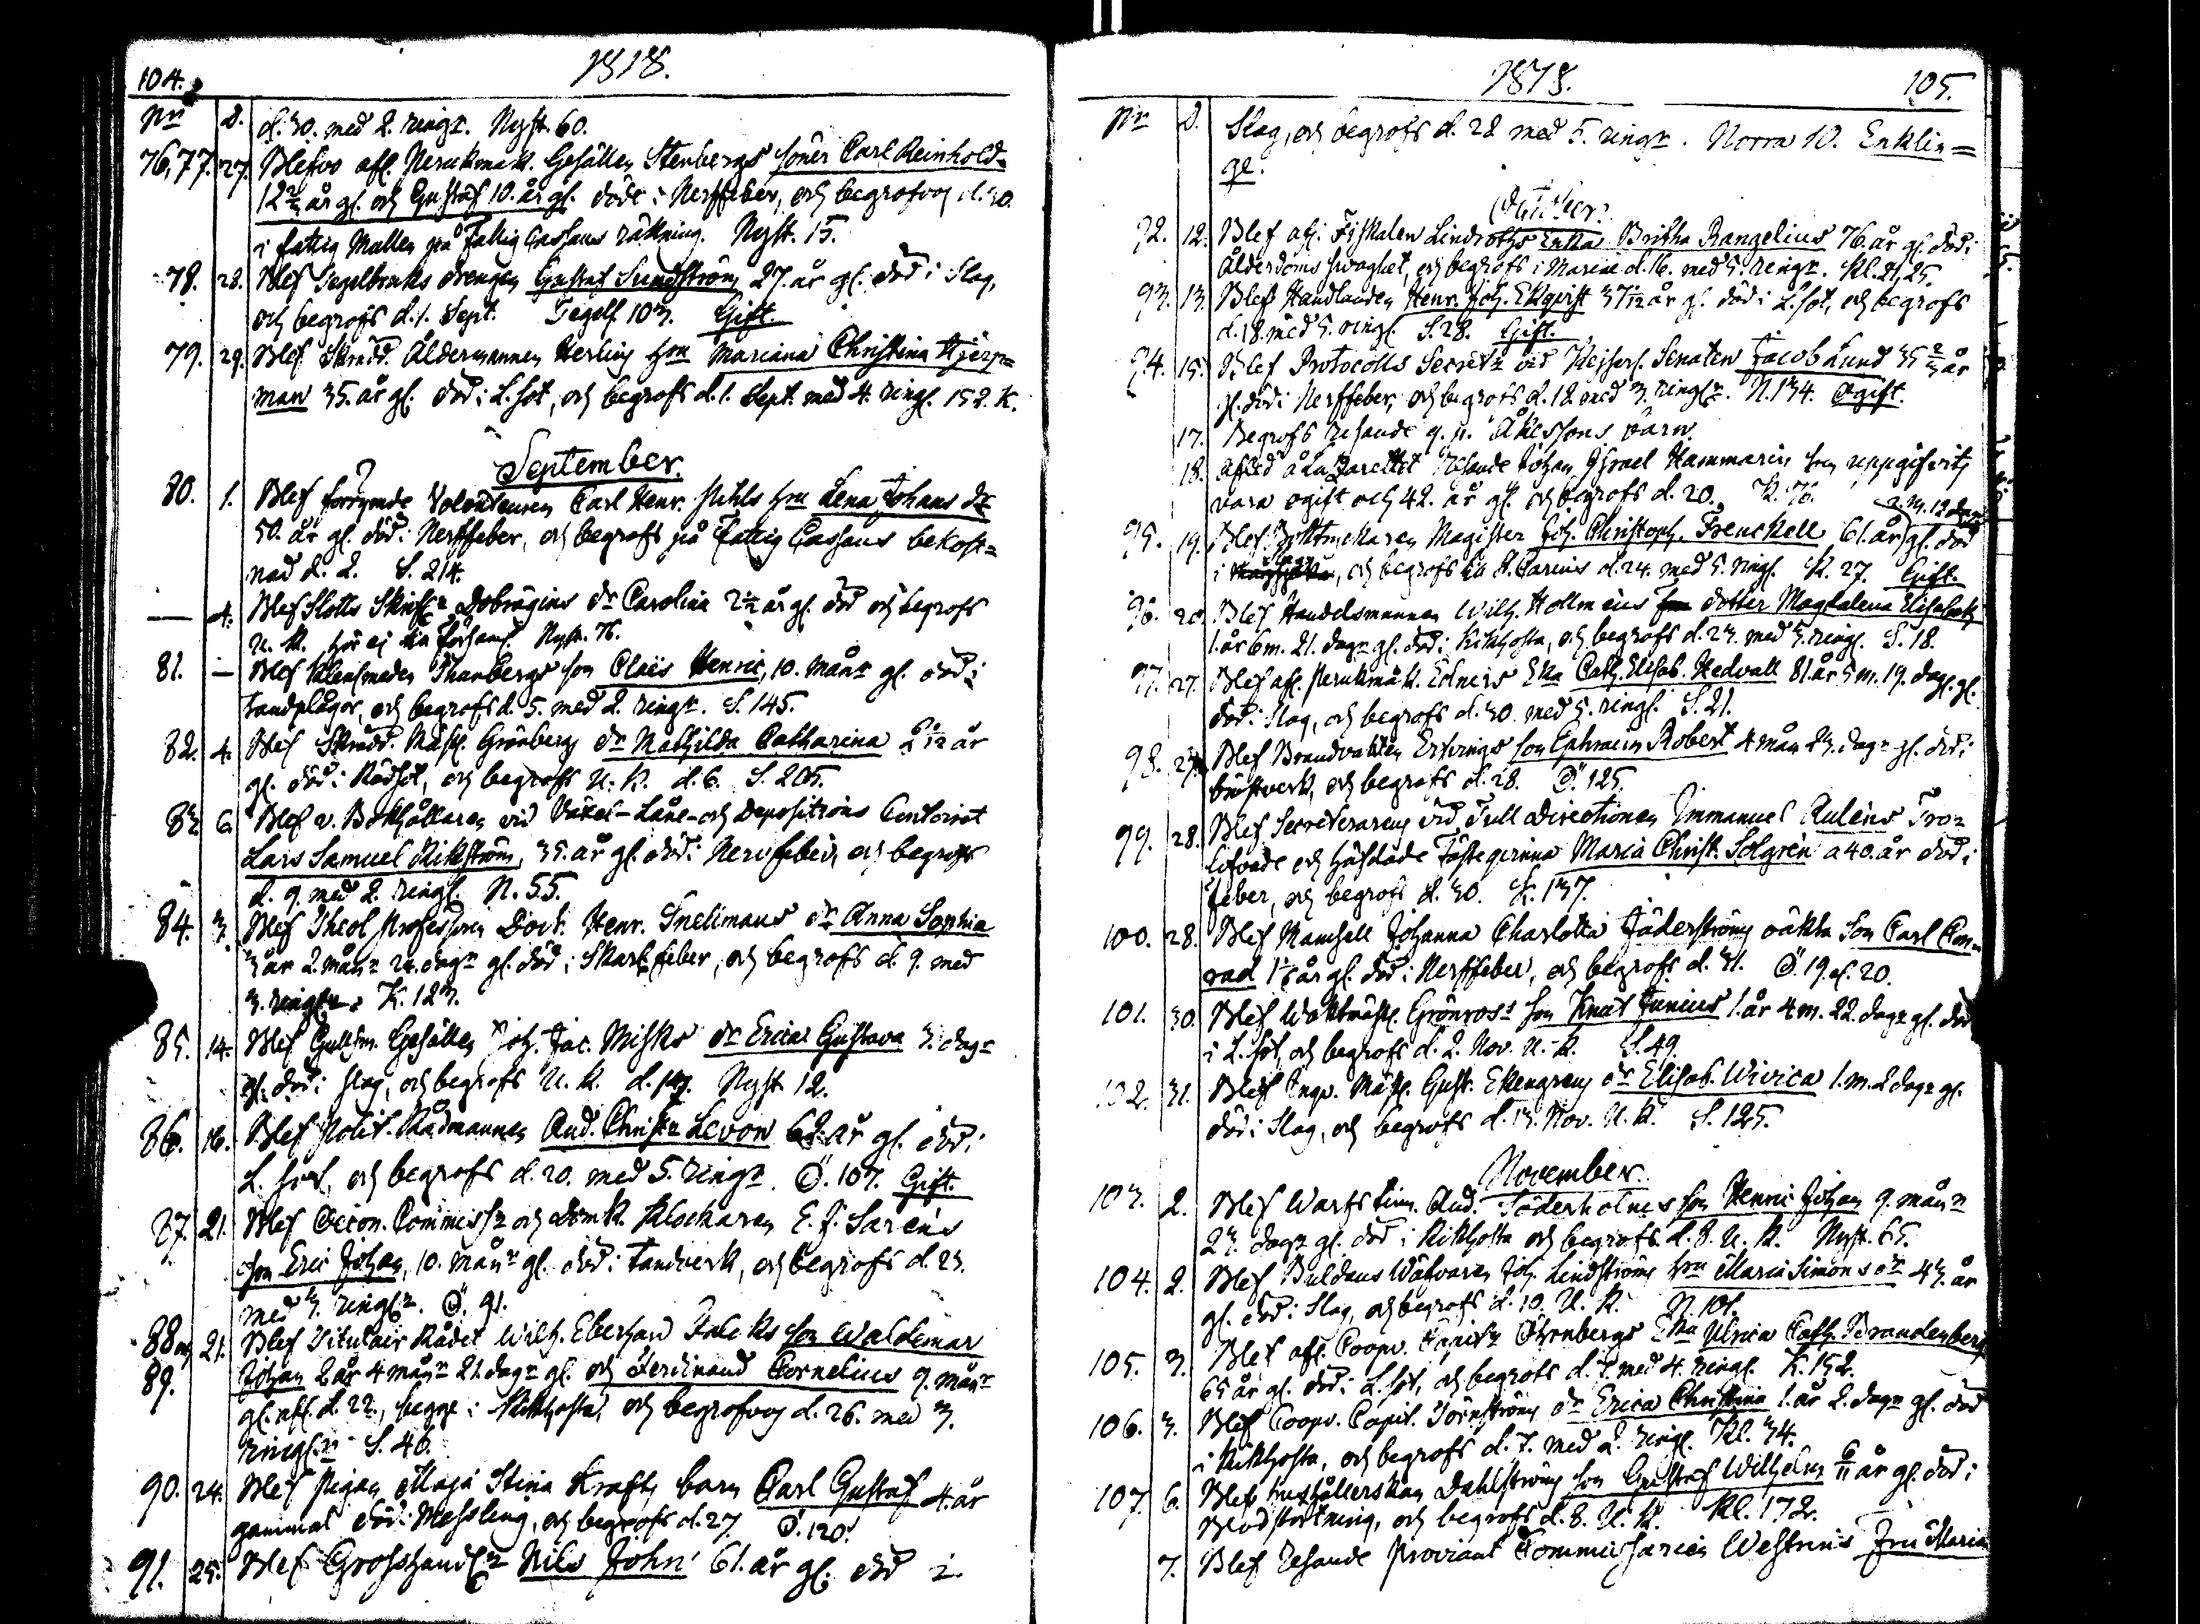 104.
1818.
Nr D. d. 30. med 2. ringr. Nyst. 60.
76, 77. 27. Blefvo afl. Perukmak. Gesällen Stenbergs söner Carl Reinhold
12 år gl. och Gustaf 10. år gl. döde i Nerffeber, och begrofvos d. 30.
i fattig Mullen på Fattig Cassans räkning. Nyst. 15.
78. 28. Blef Tegelbruks drengen Gustaf Sundström 27. år gl. död i Slag,
och begrofs d. 1. Sept. Tegels. 103. Gift.
79. 29. Blef Skrädd. Åldermannen Herlins hru Mariana Christina Hjerp=
man 35. år gl. död i L. sot, och begrofs d. 1. Sept. med 4. ringl. 152. K.
September.
80. 1. Blef förrymde Volontairen Carl Henr. Pihls hru Lena Johans dr
50. år gl. död i Nerffeber, och begrofs på Fattig Cassans bekost=
nad d. 2. S. 214.
— 4. Blef Slotts Skrifv Dobrägins dr Carolina 2 1/2 år gl. död och begrofs
U. K. hör ej till Förs. Nyst. 76.
81. — Blef Klensmeden Thunbergs son Claës Henric, 10. månr gl. död i
tandplågor, och begrofs d. 5. med 2. ringr. S. 145.
82. 4. Blef Skrädd. Mäst. Grönbergs dr Mathilda Catharina 2 1/12 år
gl. död i Rödsot, och begrofs U. K. d. 6. S. 205.
83. 6. Blef v. Bokhållaren vid Växel-Låne-och Depositions Contoiret
Lars Samuel Wikström, 35. år gl. död i Nervfeber, och begrofs
d. 9. med 2. ringl. N. 55.
84. 3. Blef Theol. Professoren Doct. Henr. Snellmans dr Anna Sophia
3 år 2. månr 24. dagr gl. död i Skarl. feber, och begrofs d. 9. med
3. ringl. K. 123.
85. 14. Blef Gullsm. Gesällen Joh. Jac. Misks dr Erica Gustava 3. dagr
gl. död i slag, och begrofs U. K. d. 17. Nyst. 12.
86. 16. Blef Polit. Rådmannen And. Christ. Levon 62. år gl. död i
L. sot, och begrofs d. 20. med 5. ringr. Ö. 107. Gift.
87. 21. Blef Oecon. Commiss. och domk. Klockaren E. J. Sarens
son Eric Johan, 10. månr gl. död i tandverk, och begrofs d. 23.
med 3. ringl. Ö. 91.
88 och 21. Blef Titulair Rådet Wilh. Eberhard Falcks son Waldemar
89. Johan 2 år 4 månr 21. dagr gl. och Ferdinand Cornelius 9. månr
gl. afl. d. 22., begge i Kikhosta, och begrofvos d. 26. med 3.
ringl. S. 46.
90. 24. Blef Pigan Maja Stina Krafts barn Carl Gustaf 4. år
gammal död i Messling, och begrofs d. 27. Ö. 120.
91. 25. Blef Grosshandl. Nils John 61. år gl. död i
1818.
105.
Nr D. Slag, och begrofs d. 28 med 5. ringr. Norra 10. Enklin=
ge.
October.
92. 12. Blef afl. Fiskalen Lindroths Enka Britha Rangelius 76. år gl. död i
Ålderdoms svaghet, och begrofs i Marine d. 16. med 5. ringr. Kl. 21, 25.
93. 13. Blef Handlanden Henr. Joh. Ekqvist 37 år gl. död i L. sot, och begrofs
d. 18. med 5. ringl. S. 28. Gift.
94. 15. Blef Protocolls Secret. vid Kejserl. Senaten Jacob Lund 35 år
gl. död i Nerffeber, och begrofs d. 18. med 3. ringlr. N. 134. Ogift.
17. Begrofs resande g. n. Åkessons barn.
18. Afled å Lazarettet Resande Johan Israel Hammarin som uppgifvits
vara ogift och 42. år gl. och begrofs d. 20. K. 76.
2. M. 12 dagr
95. 19. Blef Boktryckaren Magister Joh. Christoph. Frenckell 61. år gl. död
i, och begrofs till St. Carins d. 24. med 5. ringl. K. 27. Gift.
96. 20. Blef Handelsmannen Wilh. Hollmeus dotter Magdalena Elisabeth
1. år 6 m. 21. dagr gl. död i Kikhosta, och begrofs d. 23. med 3. ringl. S. 18.
97. 27. Blef afl. Perukmak. Edners Eka Cath. Elisab. Hedvall 81. år 5 m. 19. dag. gl.
död i Slag, och begrofs d. 30. med 5. ringl. S. 21.
98. 27. Blef Brandvakten Ervings son Ephraim Robert 4 mån 23. dagr gl. död i
bröstverk, och begrofs d. 28. Ö. 125.
99. 28. Blef Secreteraren vid Tull Directionen Immanuel Aulens Tro=
lofvade och häfdade Fästeqvinna Maria Christ. Solgren a 40. år död i
feber, och begrofs d. 30. K. 137.
100. 28. Blef Mamsell Johanna Charlotta Söderströms oäkta son Carl Con=
rad 1 år gl. död i Nerffeber, och begrofs d. 31. Ö. 19. el. 20.
101. 30. Blef Waktmäst. Grönroos son Knut Junius 1. år 4 m. 22. dagr gl. död
i L. sot, och begrofs d. 2. Nov. U. K. S. 49.
102. 31. Blef Inqv. Mäst. Gust. Ekengrens dr Elisab. Wivica 1. m. 2 dagr gl.
död i Slag, och begrofs d. 13. Nov. U. K. S. 125.
November.
103. 2. Blef Warfs Tim. And. Söderholms son Henric Johan 9. månr
23. dagr gl. död i Kikhosta och begrofs d. 8. U. K. Nyst. 65.
104. 2. Blef Buldans Wäfvaren Joh. Lindströms hru Maria Simons dr 43. år
gl. död i Slag, och begrofs d. 10. U. K. N. 101.
105. 3. Blef afl. Coopv. Capit. Öhrnbergs Eka Ulrica Cath. Brandenberg
65 år gl. död i L. sot, och begrofs d. 7. med 4. ringl. K. 152.
106. 3. Blef Coopv. Capit. Törnströms dr Erica Christina 1. år 2. dagr gl. död
i Kikhosta, och begrofs d. 7. med 2. ringl. Kl. 34.
107. 6. Blef hushållerskan Dahlströms son Gustaf Wilhelm 6/11 år gl. död i
Blodstörtning, och begrofs d. 8. U. K. Kl. 172.
7. Blef Resande Proviant Commissarien Westrins Fru Maria